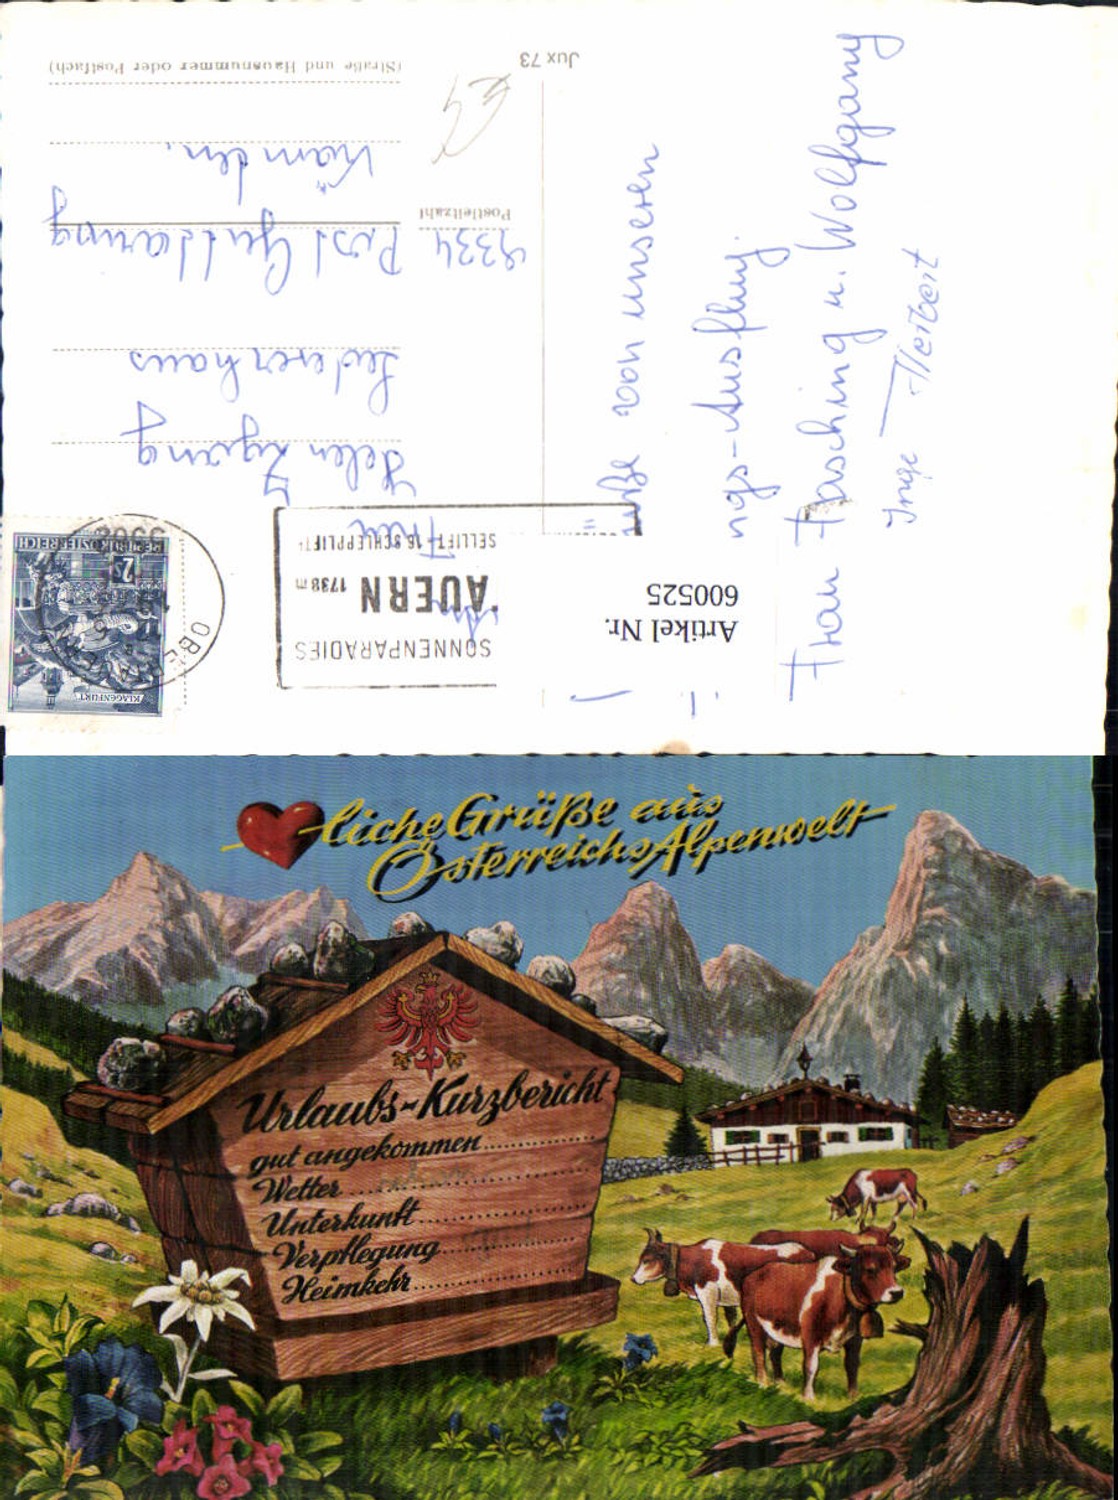 (Straße und Hausnummer oder Postfach)
Kärnten.
Postleitzahl
9334 Post Guttaring
Ledererhaus
Frau
An
Jux 73
€4
SONNENPARADIES
AUERN 1738 m
SELLIFT 16 SCHLEPPLIFTE
REPUBLIK ÖSTERREICH
2S
KLAGENFURT
OBE
Artikel Nr.
600525
üße von unseren
ngs-Ausflug.
Frau Fasching u. Wolfgang
Inge Herbert
liche Grüße aus
Österreichs Alpenwelt
Urlaubs-Kurzbericht
gut angekommen
Wetter
Unterkunft
Verpflegung
Heimkehr